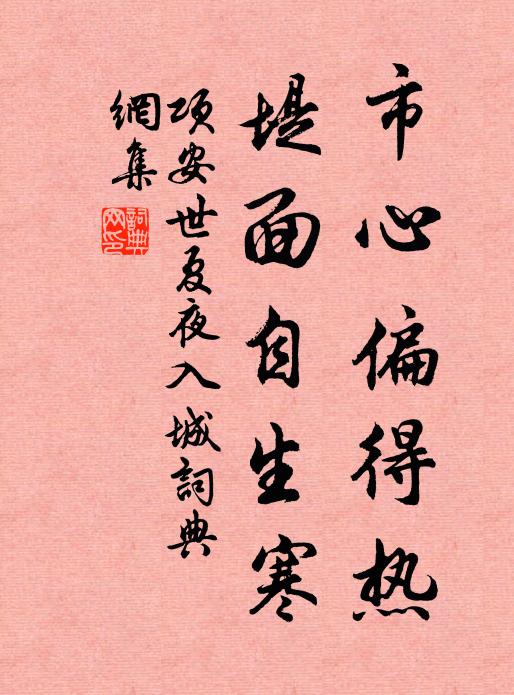 市心偏得热
堤面自生寒
项安世夏夜入城词典
網集
詞典網印